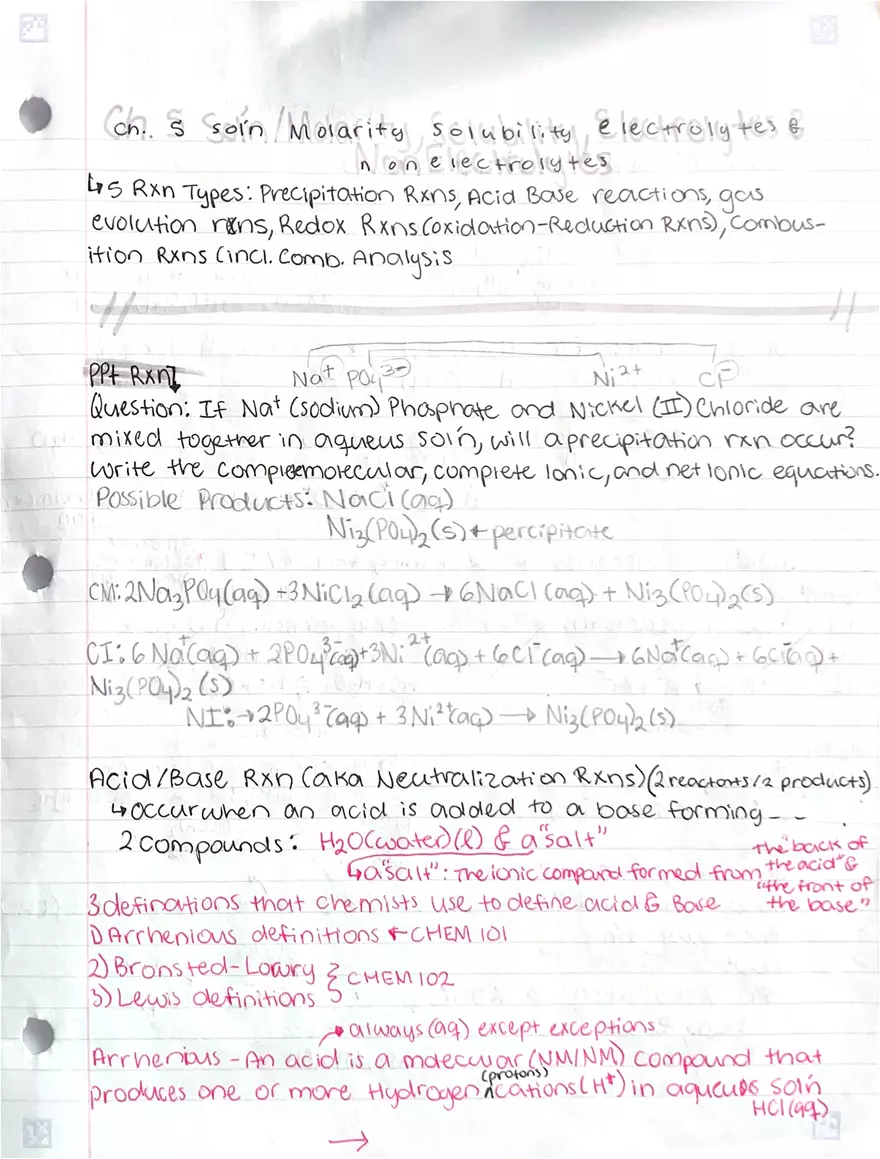 Ch. 5 Sol'n/Molarity, Solubility, Electrolytes &
nonelectrolytes
↳5 Rxn Types: Precipitation Rxns, Acid Base reactions, gas
evolution rxns, Redox Rxns (oxidation-Reduction Rxns), Combus-
ition Rxns (incl. Comb. Analysis
PPt Rxn↓
Na⁺ PO₄³⁻ Ni²⁺ Cl⁻
Question: If Na⁺ (sodium) Phosphate and Nickel (II) Chloride are
mixed together in aqueus sol'n, will a precipitation rxn occur?
Write the complete molecular, complete Ionic, and net Ionic equations.
Possible Products: NaCl (aq)
Ni₃(PO₄)₂ (s) ← percipitate
CM: 2Na₃PO₄(aq) + 3NiCl₂ (aq) → 6NaCl (aq) + Ni₃(PO₄)₂(s)
CI: 6Na⁺(aq) + 2PO₄³⁻(aq) + 3Ni²⁺(aq) + 6Cl⁻(aq) → 6Na⁺(aq) + 6Cl⁻(aq) +
Ni₃(PO₄)₂ (s)
NI: → 2PO₄³⁻(aq) + 3Ni²⁺(aq) → Ni₃(PO₄)₂(s)
Acid/Base Rxn (aka Neutralization Rxns)(2 reactants/2 products)
↳occur when an acid is added to a base forming - -
2 compounds: H₂O(water)(l) & a "salt"
↳a "salt": The ionic compound formed from the "back of
the acid" &
"the front of
the base"
3 definations that chemists use to define acid & Base
1) Arrhenious definitions ← CHEM 101
2) Bronsted-Lowry } CHEM 102
3) Lewis definitions
→ always (aq) except exceptions
Arrhenius - An acid is a molecular (NM/NM) compound that
produces one or more Hydrogen (protons) cations (H⁺) in aqueuos sol'n
HCl(aq)
→